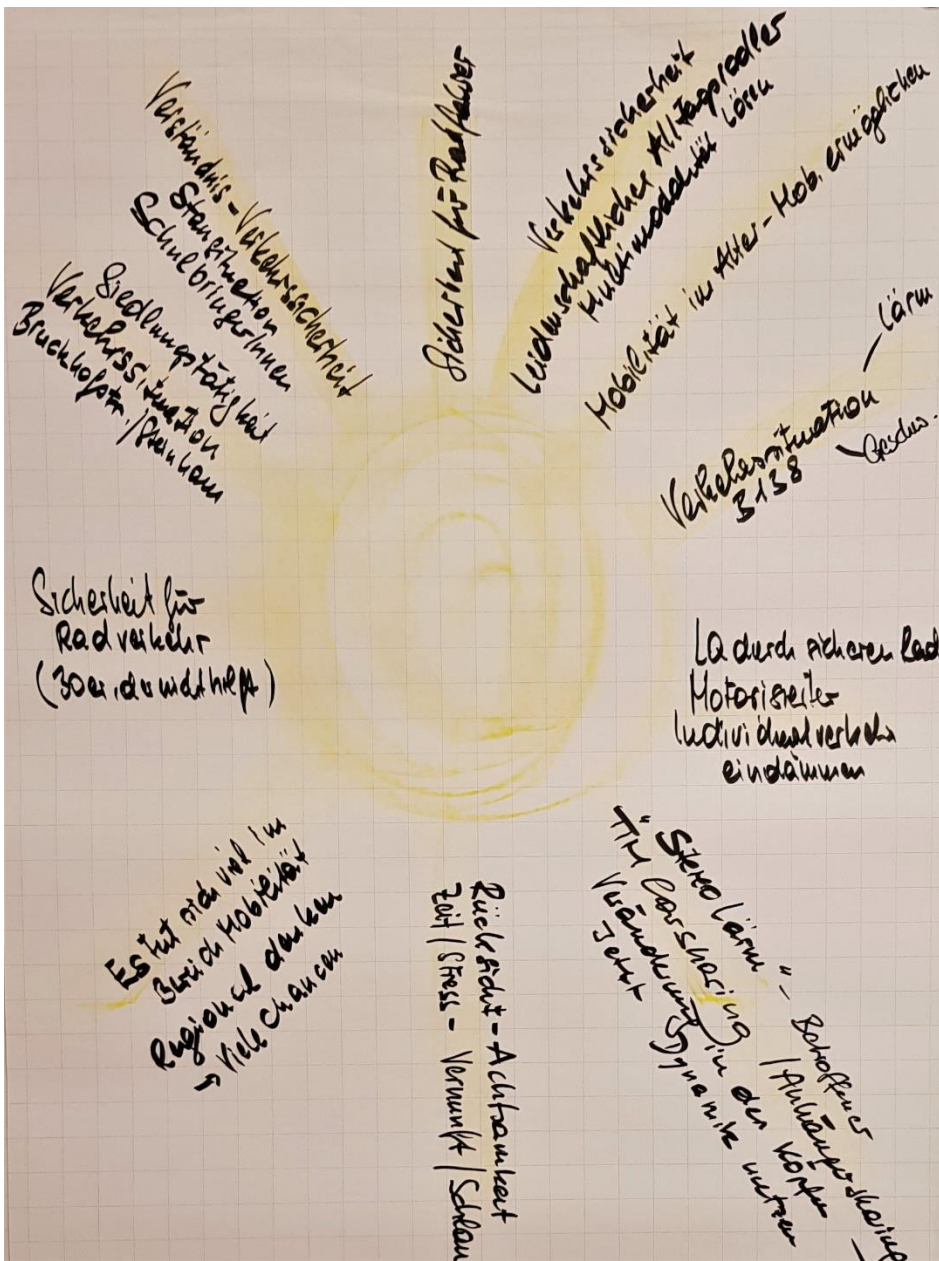 Verständnis - Verkehrssicherheit
Stausituation
SchulbringerInnen
Siedlungstätigkeit
Verkehrssituation
/Steinham
Sicherheit für Radfahrer
Verkehrssicherheit
Leidenschaftlicher Alltagsradler
Multimodalität
Mobilität im Alter - Mob. ermöglichen
Verkehrssituation
B138
Lärm
Geschw.
Sicherheit für
Radverkehr
(30er, der nicht hilft)
LQ durch sicheren Rad
Motorisierter
Individualverkehr
eindämmen
Es tut sich viel im
Bereich Mobilität
Regional denken
→ Viele Chancen
Rücksicht - Achtsamkeit
Zeit/Stress - Vernunft/
"Stereo Lärm" - Betroffener
TIM Carsharing /Anhängersharing
Veränderung in den Köpfen
Jetzt Dynamik nutzen